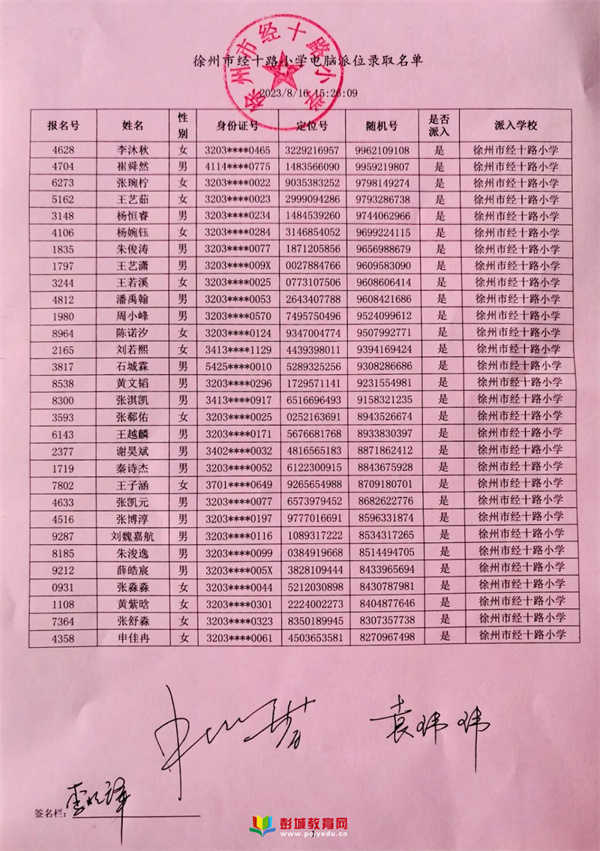 徐州市经十路小学电脑派位录取名单
徐州市经十路小学
2023/8/16 15:26:09
报名号 姓名 性别 身份证号 定位号 随机号 是否派入 派入学校
4628 李沐秋 女 3203****0465 3229216957 9962109108 是 徐州市经十路小学
4704 崔舜然 男 4114****0775 1483566090 9959219807 是 徐州市经十路小学
6273 张琬柠 女 3203****0022 9035383252 9798149274 是 徐州市经十路小学
5162 王艺茹 女 3203****0023 2999094286 9793286738 是 徐州市经十路小学
3148 杨恒睿 男 3203****0234 1484539260 9744062966 是 徐州市经十路小学
4106 杨婉钰 女 3203****0284 3146854052 9699224115 是 徐州市经十路小学
1835 朱俊涛 男 3203****0077 1871205856 9656988679 是 徐州市经十路小学
1797 王艺潇 男 3203****009X 0027884766 9609583090 是 徐州市经十路小学
3244 王若溪 女 3203****0025 0773107506 9608606414 是 徐州市经十路小学
4812 潘禹翰 男 3203****0053 2643407788 9608421686 是 徐州市经十路小学
1980 周小峰 男 3203****0570 7495750496 9524099612 是 徐州市经十路小学
8964 陈诺汐 女 3203****0124 9347004774 9507992771 是 徐州市经十路小学
2165 刘若熙 女 3413****1129 4439398011 9394169424 是 徐州市经十路小学
3817 石城霖 男 5425****0010 5289325256 9308286686 是 徐州市经十路小学
8538 黄文韬 男 3203****0296 1729571141 9231554981 是 徐州市经十路小学
8300 张淇凯 男 3413****0917 6516696493 9158321235 是 徐州市经十路小学
3593 张郗佑 女 3203****0025 0252163691 8943526674 是 徐州市经十路小学
6143 王越麟 男 3203****0171 5676681768 8933830397 是 徐州市经十路小学
2377 谢昊斌 男 3402****0032 4816565183 8871862412 是 徐州市经十路小学
1719 秦诗杰 男 3203****0052 6122300915 8843675928 是 徐州市经十路小学
7802 王子涵 女 3701****0649 9265654988 8709180701 是 徐州市经十路小学
4633 张凯元 男 3203****0077 6573979452 8682622776 是 徐州市经十路小学
4516 张博淳 男 3203****0197 9777016691 8596331874 是 徐州市经十路小学
9287 刘魏嘉航 男 3203****0116 1089317222 8534317265 是 徐州市经十路小学
8185 朱浚逸 男 3203****0099 0384919668 8514494705 是 徐州市经十路小学
9212 薛皓宸 男 3203****005X 3828109444 8433965694 是 徐州市经十路小学
0931 张淼淼 女 3203****0044 5212030898 8430787981 是 徐州市经十路小学
1108 黄紫晗 女 3203****0301 2224002273 8404877646 是 徐州市经十路小学
7364 张舒淼 女 3203****0323 8350189945 8307357738 是 徐州市经十路小学
4358 申佳冉 女 3203****0061 4503653581 8270967498 是 徐州市经十路小学
袁玮玮
签名栏:
彭城教育网
www.pcjyedu.cn